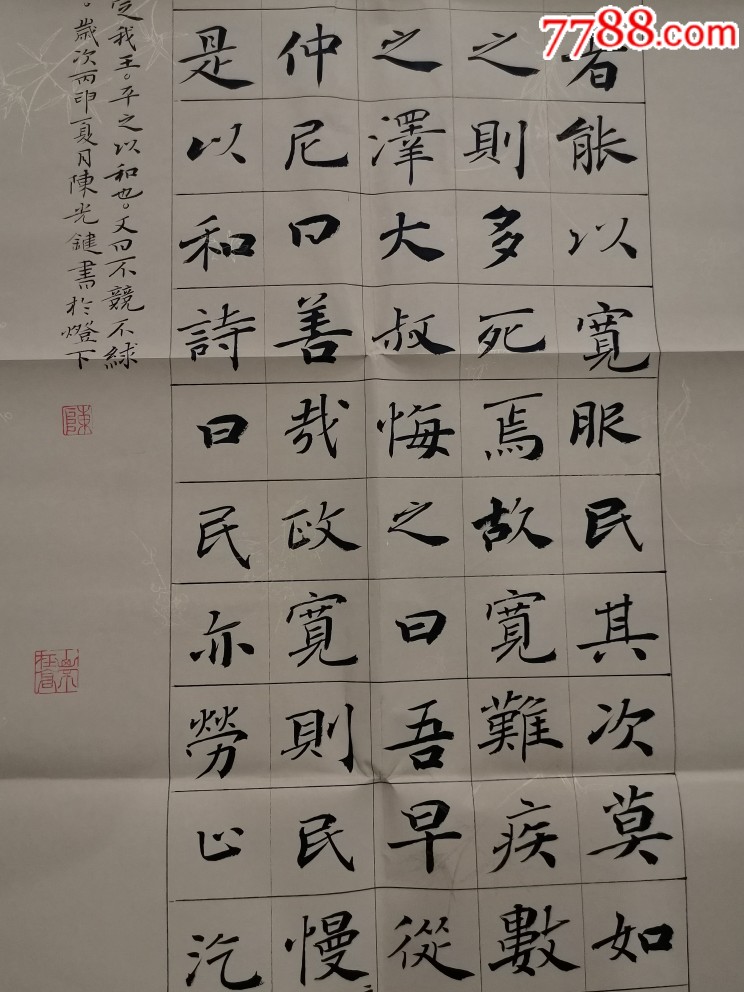 7788.com
者能以寬服民其次莫如
之則多死焉故寬難疾數
之澤大叔悔之曰吾早從
仲尼曰善哉政寬則民慢
是以和詩曰民亦勞止汔
定我王。平之以和也。又曰不競不絿
。歲次丙申夏月陳光鍵書於燈下
陳